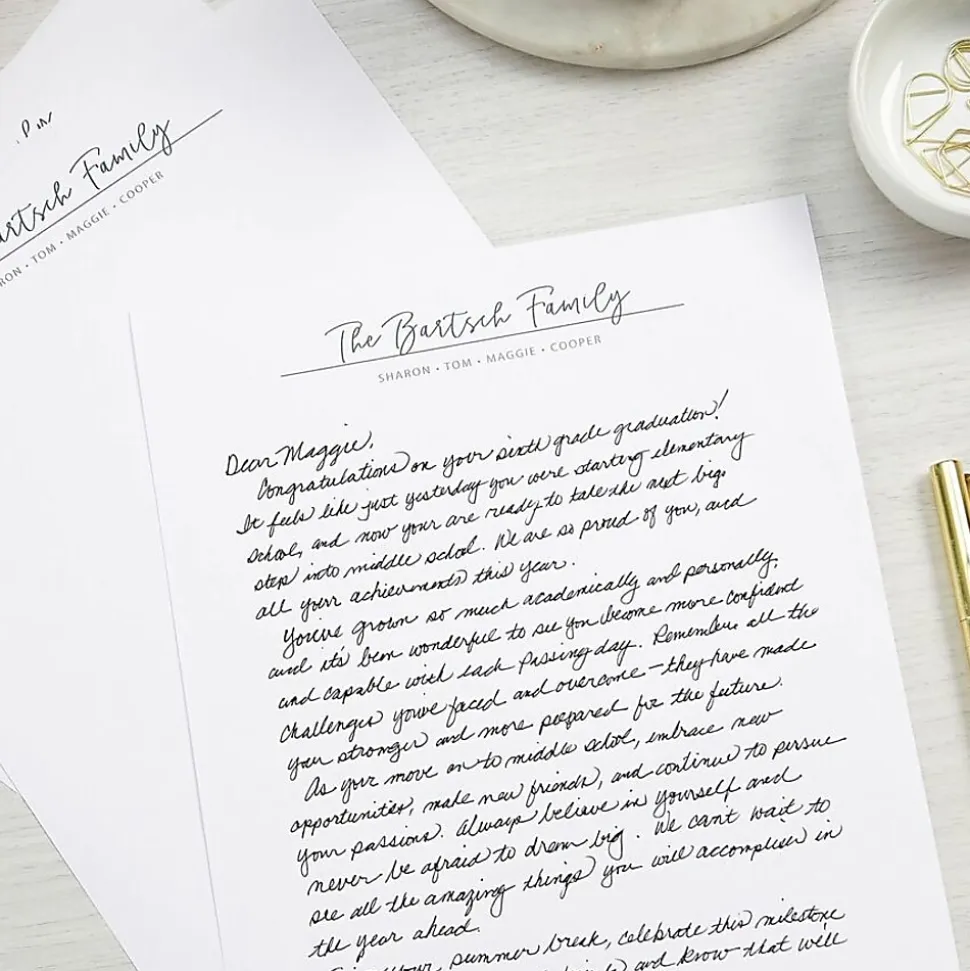 artsch Family
RON • TOM • MAGGIE • COOPER
The Bartsch Family
SHARON • TOM • MAGGIE • COOPER
Dear Maggie,
Congratulations on your sixth grade graduation!
It feels like just yesterday you were starting elementary
school, and now your are ready to take the next big
step into middle school. We are so proud of you, and
all your achievements this year.
You've grown so much academically and personally,
and it's been wonderful to see you become more confident
and capable with each passing day. Remember all the
challenges you've faced and overcome - they have made
your stronger and more prepared for the future.
As your move on to middle school, embrace new
opportunities, make new friends, and continue to persue
your passions. Always believe in yourself and
never be afraid to dream big. We can't wait to
see all the amazing things you will accomplish in
the year ahead.
your summer break, celebrate this milestone
and know that we'll